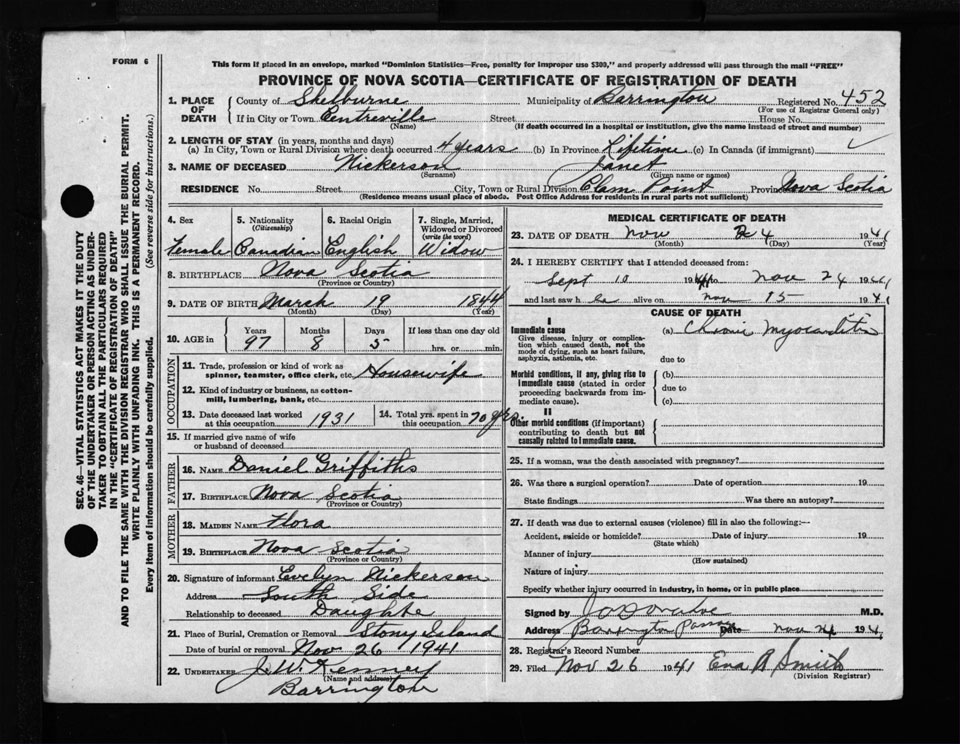 FORM 6
This form if placed in an envelope, marked "Dominion Statistics—Free, penalty for improper use $300," and properly addressed will pass through the mail "FREE"
PROVINCE OF NOVA SCOTIA—CERTIFICATE OF REGISTRATION OF DEATH
1. PLACE OF DEATH County of Shelburne Municipality of Barrington Registered No. 452
(For use of Registrar General only)
If in City or Town Centreville Street House No.
(Name) (If death occurred in a hospital or institution, give the name instead of street and number)
2. LENGTH OF STAY (in years, months and days)
(a) In City, Town or Rural Division where death occurred 4 years (b) In Province Lifetime (c) In Canada (if immigrant)
3. NAME OF DECEASED Nickerson Janet
(Surname) (Given name or names)
RESIDENCE No. Street City, Town or Rural Division Clam Point Province Nova Scotia
(Residence means usual place of abode. Post Office Address for residents in rural parts not sufficient)
4. Sex Female
5. Nationality (Citizenship) Canadian
6. Racial Origin English
7. Single, Married, Widowed or Divorced (write the word) Widow
8. BIRTHPLACE Nova Scotia
(Province or Country)
9. DATE OF BIRTH March 19 1844
(Month) (Day) (Year)
10. AGE in Years 97 Months 8 Days 5 If less than one day old hrs. or min.
OCCUPATION
11. Trade, profession or kind of work as spinner, teamster, office clerk, etc. Housewife
12. Kind of industry or business, as cotton-mill, lumbering, bank, etc.
13. Date deceased last worked at this occupation 1931
14. Total yrs. spent in this occupation 70 yrs.
15. If married give name of wife or husband of deceased
FATHER
16. NAME Daniel Griffiths
17. BIRTHPLACE Nova Scotia
(Province or Country)
MOTHER
18. MAIDEN NAME Flora
19. BIRTHPLACE Nova Scotia
(Province or Country)
20. Signature of informant Evelyn Nickerson
Address South Side
Relationship to deceased Daughter
21. Place of Burial, Cremation or Removal Stony Island
Date of burial or removal Nov 26 1941
22. UNDERTAKER J. W. Kenney
(Name and address)
Barrington
MEDICAL CERTIFICATE OF DEATH
23. DATE OF DEATH Nov 24 1941
(Month) (Day) (Year)
24. I HEREBY CERTIFY that I attended deceased from:
Sept 10 1941 to Nov 24 1941
and last saw her alive on Nov 15 1941
CAUSE OF DEATH
I
Immediate cause (a) Chronic Myocarditis
Give disease, injury or complication which caused death, not the mode of dying, such as heart failure, asphyxia, asthenia, etc.
due to
Morbid conditions, if any, giving rise to immediate cause (stated in order proceeding backwards from immediate cause).
(b)
due to
(c)
II
Other morbid conditions (if important) contributing to death but not causally related to immediate cause.
25. If a woman, was the death associated with pregnancy?
26. Was there a surgical operation? Date of operation 19
State findings Was there an autopsy?
27. If death was due to external causes (violence) fill in also the following:—
Accident, suicide or homicide? Date of injury 19
(State which)
Manner of injury
(How sustained)
Nature of injury
Specify whether injury occurred in industry, in home, or in public place
Signed by M.D.
Address Barrington Passage Date Nov 24 1941
28. Registrar's Record Number
29. Filed Nov 26 1941 Eva A Smith
(Division Registrar)
SEC. 46—VITAL STATISTICS ACT MAKES IT THE DUTY
OF THE UNDERTAKER OR PERSON ACTING AS UNDER-
TAKER TO OBTAIN ALL THE PARTICULARS REQUIRED
IN THE "CERTIFICATE OF REGISTRATION OF DEATH"
AND TO FILE THE SAME WITH THE DIVISION REGISTRAR WHO SHALL ISSUE THE BURIAL PERMIT.
WRITE PLAINLY WITH UNFADING INK. THIS IS A PERMANENT RECORD.
Every item of information should be carefully supplied. (See reverse side for instructions.)